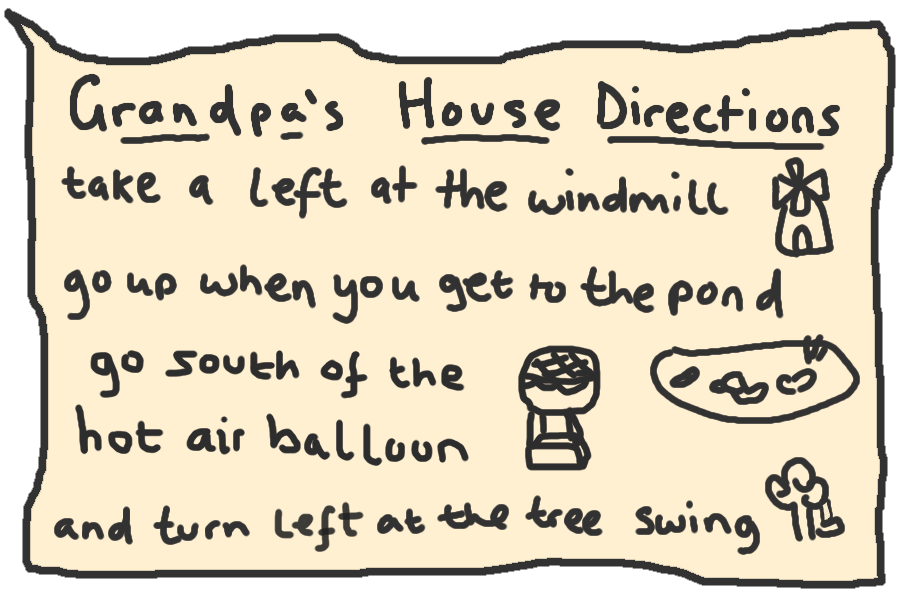 Grandpa's House Directions
take a left at the windmill
go up when you get to the pond
go south of the
hot air balloon
and turn left at the tree swing